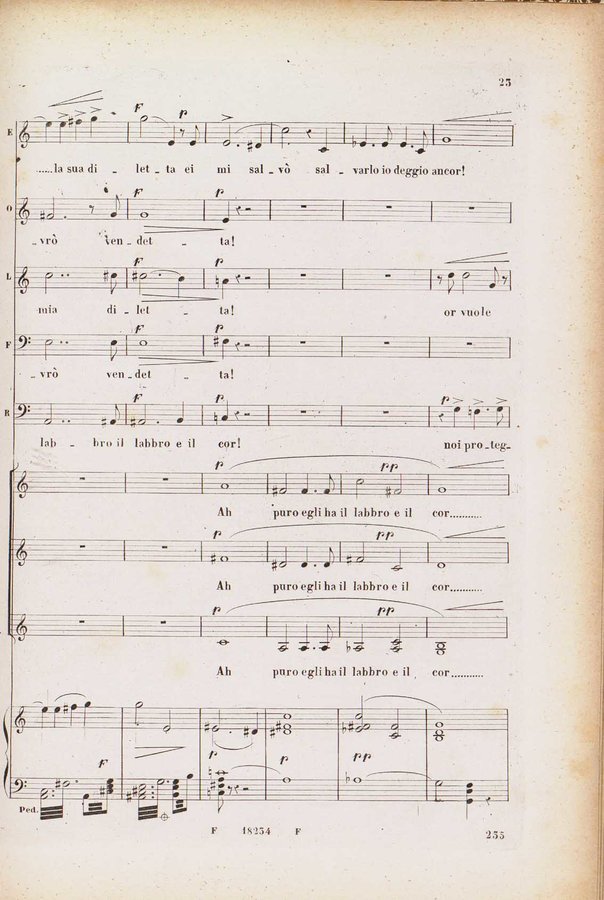 23
E
F P P
.....la sua di - let - ta ei mi sal - vò sal - varlo io deggio ancor!
O
F P
- vrò ven - det - ta!
L
F P
mia di - let - ta! or vuole
F
F P
- vrò ven - det - ta!
R
F P F
lab - bro il labbro e il cor! noi pro - teg -
P PP
Ah puro egli ha il labbro e il cor...........
P PP
Ah puro egli ha il labbro e il cor...........
P PP
Ah puro egli ha il labbro e il cor...........
F P P PP
Ped.
F 18234 F
235